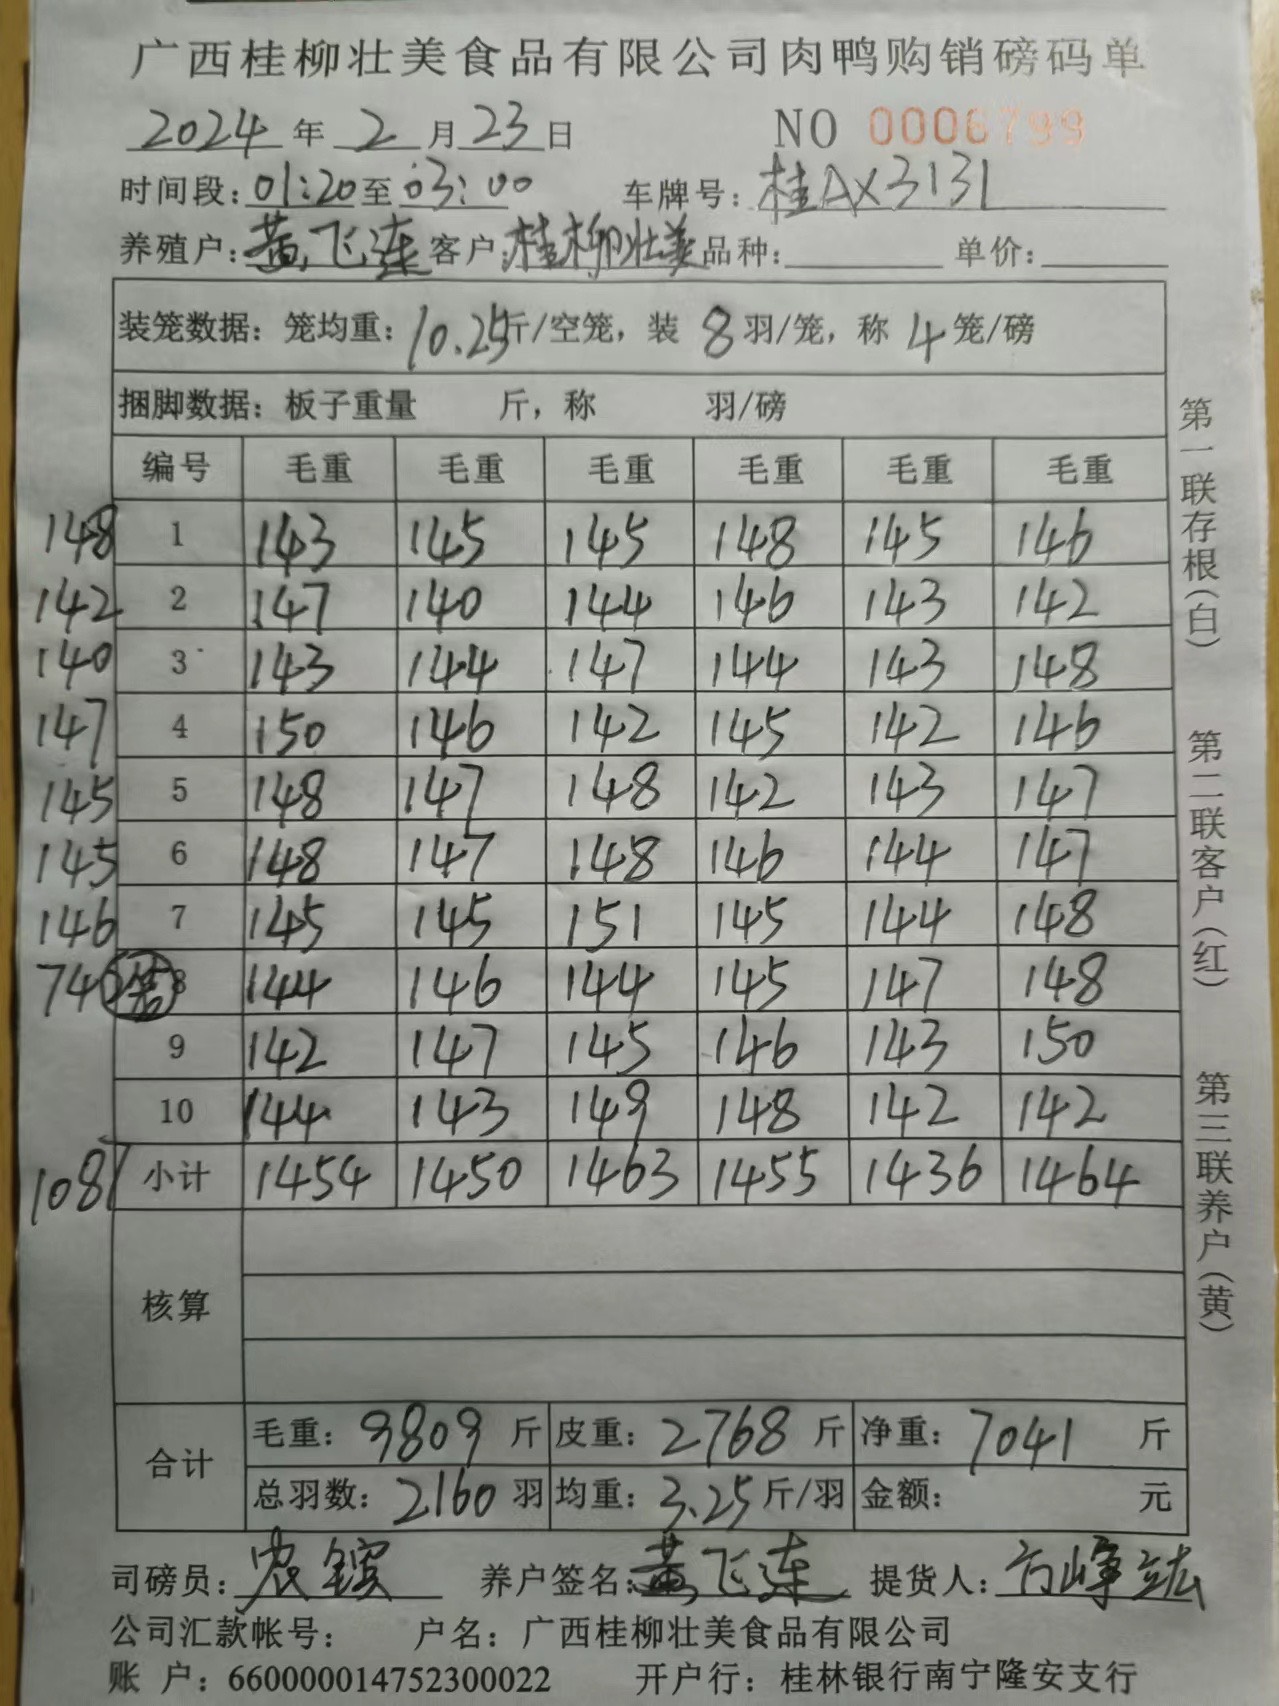 广西桂柳壮美食品有限公司肉鸭购销磅码单
2024 年 2 月 23 日 NO 0006799
时间段：01:20 至 03:00 车牌号：桂AX3131
养殖户：黄飞连 客户：桂柳壮美 品种： 单价：
装笼数据：笼均重：10.25斤/空笼，装 8 羽/笼，称 4 笼/磅
捆脚数据：板子重量 斤，称 羽/磅
编号 毛重 毛重 毛重 毛重 毛重 毛重
148 1 143 145 145 148 145 146
142 2 147 140 144 146 143 142
140 3 143 144 147 144 143 148
147 4 150 146 142 145 142 146
145 5 148 147 148 142 143 147
145 6 148 147 148 146 144 147
146 7 145 145 151 145 144 148
74 8 144 146 144 145 147 148
9 142 147 145 146 143 150
10 144 143 149 148 142 142
1087 小计 1454 1450 1463 1455 1436 1464
核算
合计 毛重：9809 斤 皮重：2768 斤 净重：7041 斤
总羽数：2160 羽 均重：3.25斤/羽 金额： 元
司磅员：农 养户签名：黄飞连 提货人：方峰
公司汇款帐号： 户名：广西桂柳壮美食品有限公司
账 户：660000014752300022 开户行：桂林银行南宁隆安支行
第一联存根（白） 第二联客户（红） 第三联养户（黄）